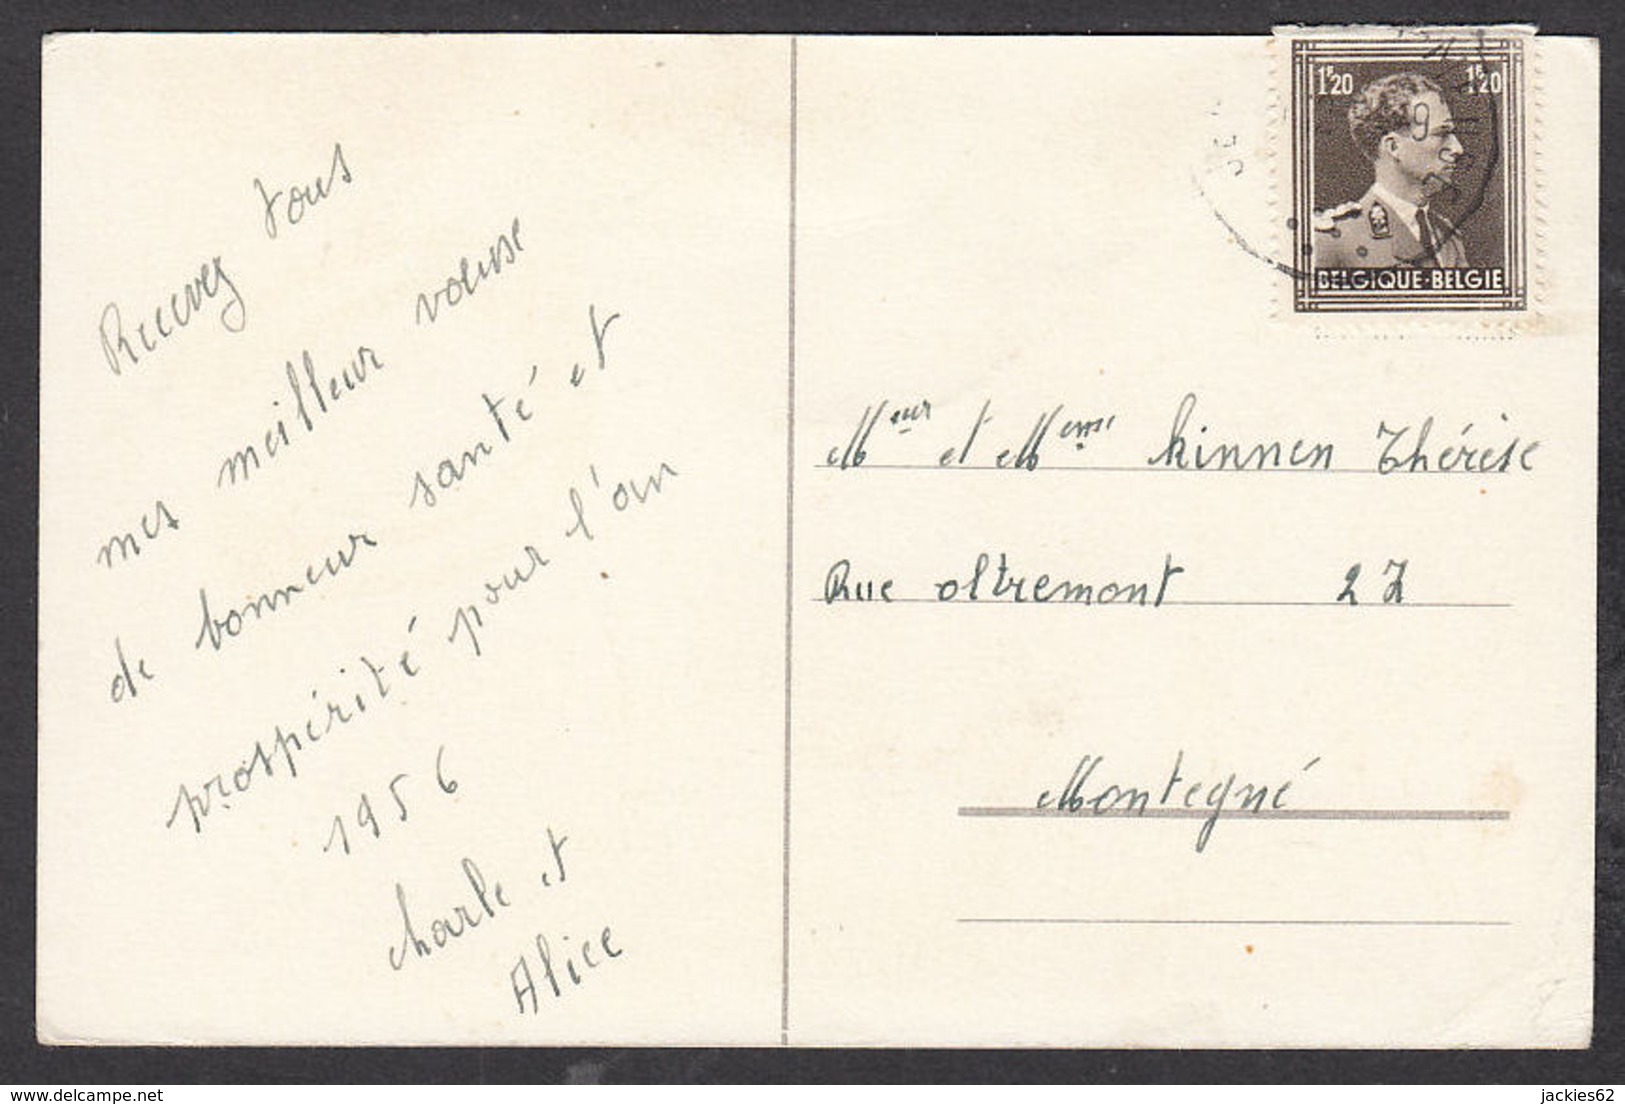 Recevez tous
mes meilleur voeuse
de bonneur santé et
prospérité pour l'an
1956
charle et
Alice
1F20 1F20
BELGIQUE·BELGIE
Meur et Meme kinnen Thérèse
Rue oltremont 27
Montegné
jackies62